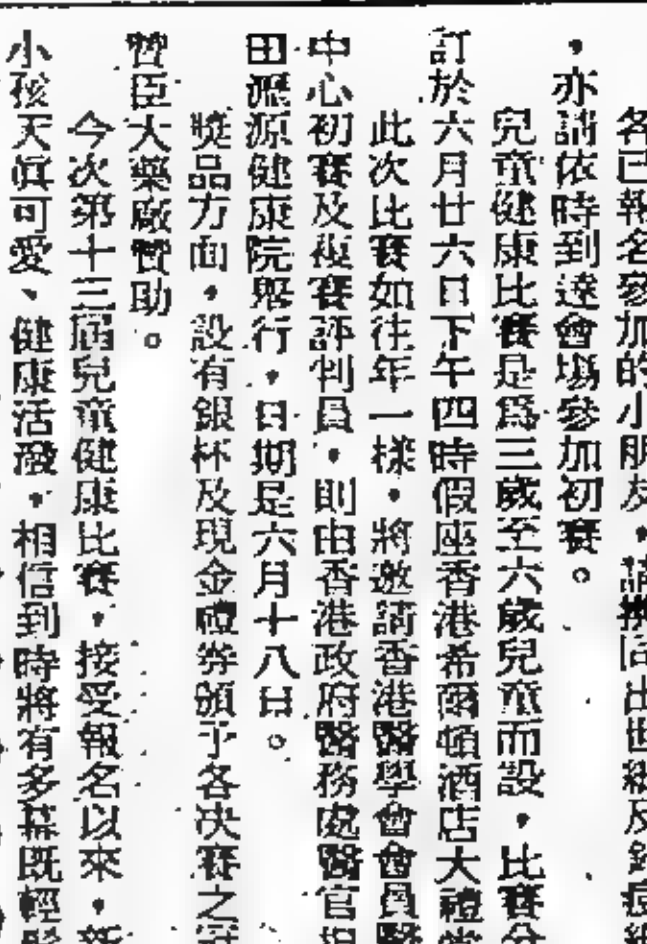 各已報名參加的小朋友，請攜同出世紙及針疫紙
，亦請依時到達會場參加初賽。
兒童健康比賽是爲三歲至六歲兒童而設，比賽分
訂於六月廿六日下午四時假座香港希爾頓酒店大禮堂
此次比賽如往年一樣，將邀請香港醫學會會員醫
中心初賽及複賽評判員，則由香港政府醫務處醫官担
田源健康院舉行，日期是六月十八日。
獎品方面，設有銀杯及現金禮券頒予各決賽之冠
贊臣大藥廠贊助。
今次第十三屆兒童健康比賽，接受報名以來，新
小孩天眞可愛、健康活潑，相信到時將有多幕既輕鬆